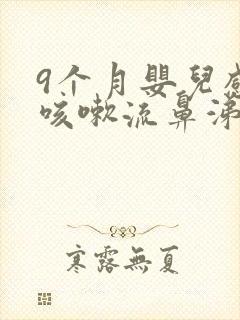 9个月嬰兒感
咳嗽流鼻涕
寒露無夏